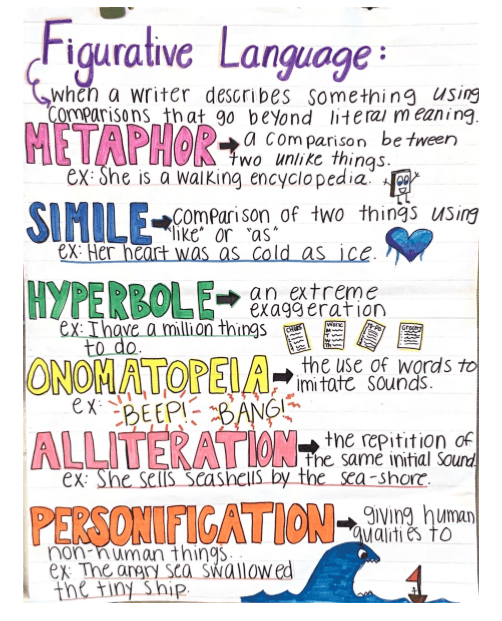 Figurative Language:
when a writer describes something using
comparisons that go beyond literal meaning.
METAPHOR → a comparison between
two unlike things.
ex: She is a walking encyclopedia.
SIMILE → comparison of two things using
"like" or "as"
ex: Her heart was as cold as ice.
HYPERBOLE → an extreme
exaggeration
ex: I have a million things
to do.
ONOMATOPEIA → the use of words to
imitate sounds.
ex: BEEP! BANG!
ALLITERATION → the repitition of
the same initial sound.
ex: She sells seashells by the sea-shore.
PERSONIFICATION → giving human
qualities to
non-human things.
ex: The angry sea swallowed
the tiny ship.